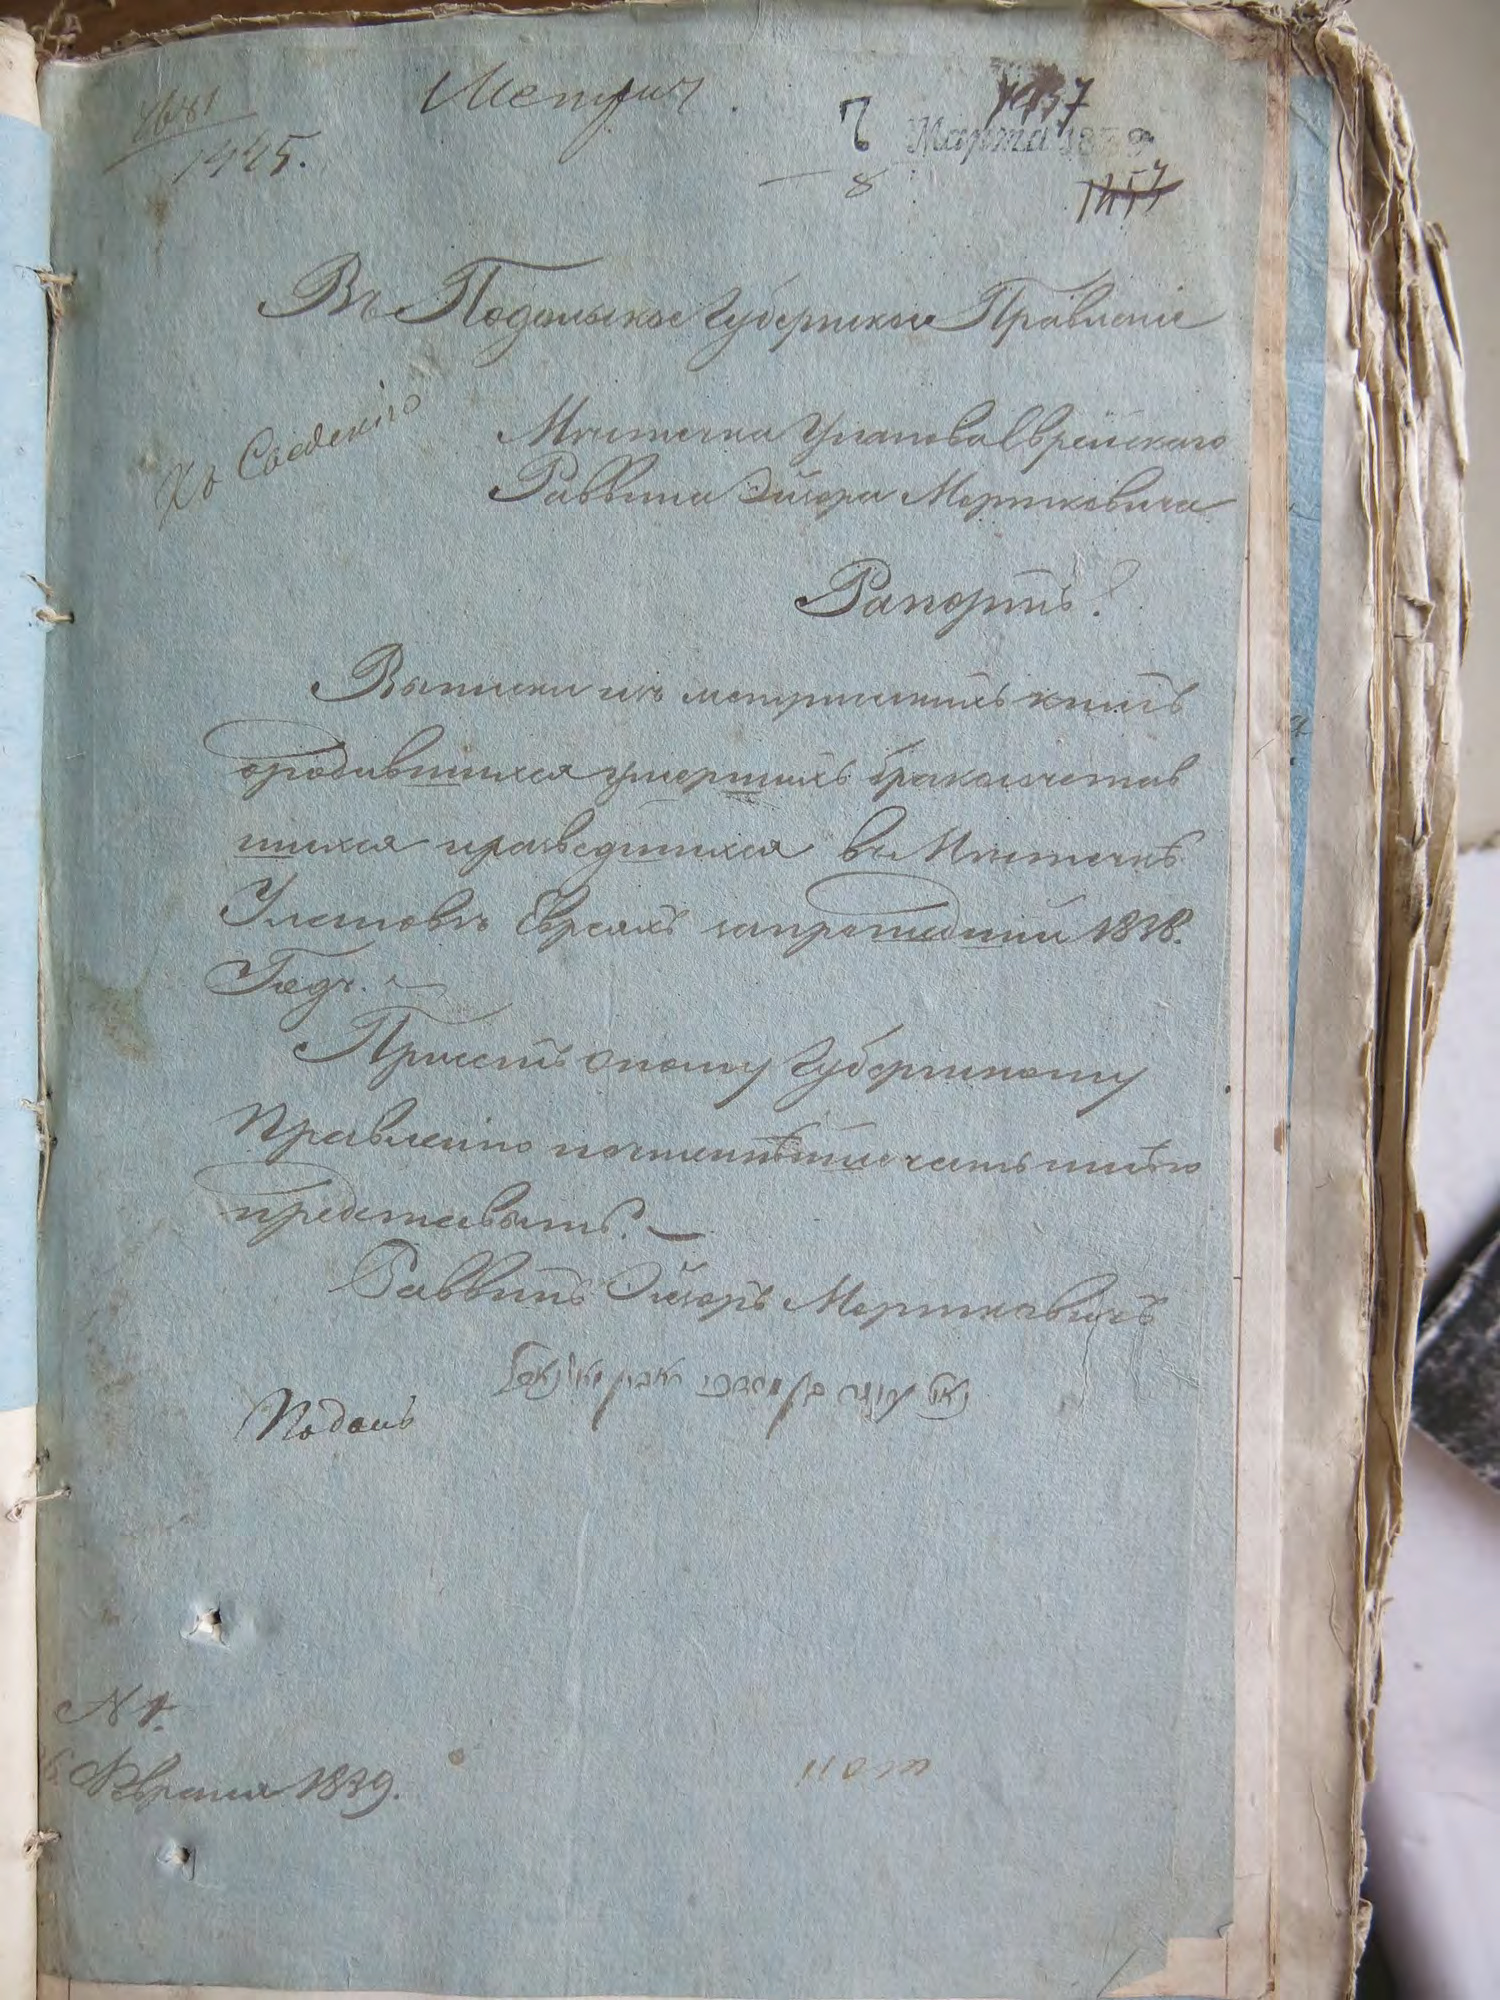 Метрич.
1445.
7 Марта 1839
8
1457
Въ Подольское Губернское Правленіе
Къ Сведенію
Мѣстечка Уланова Еврейскаго
Раввина Эйзера Мошковича
Рапортъ.
Выписки изъ метрическихъ книгъ
ородившихся умершихъ бракосочетав
шихся иразведшихся въ Мѣстечкѣ
Улановѣ Евреяхъ запрошедшій 1838.
Годъ.
Присемъ оному Губернскому
Правленію почтеннѣйше честь имѣю
представить.
Раввинъ Эйзеръ Мошковичъ
Подалъ
N 1.
Февраля 1839.